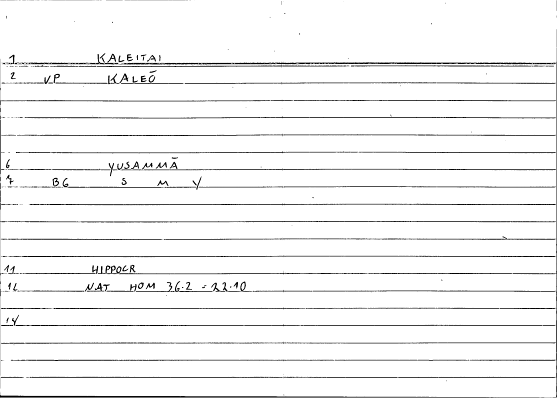 1 KALEITAI
2 VP KALEŌ
6 YUSAMMĀ
7 BG S M Y
11 HIPPOCR
12 NAT HOM 36.2 = 22.10
14